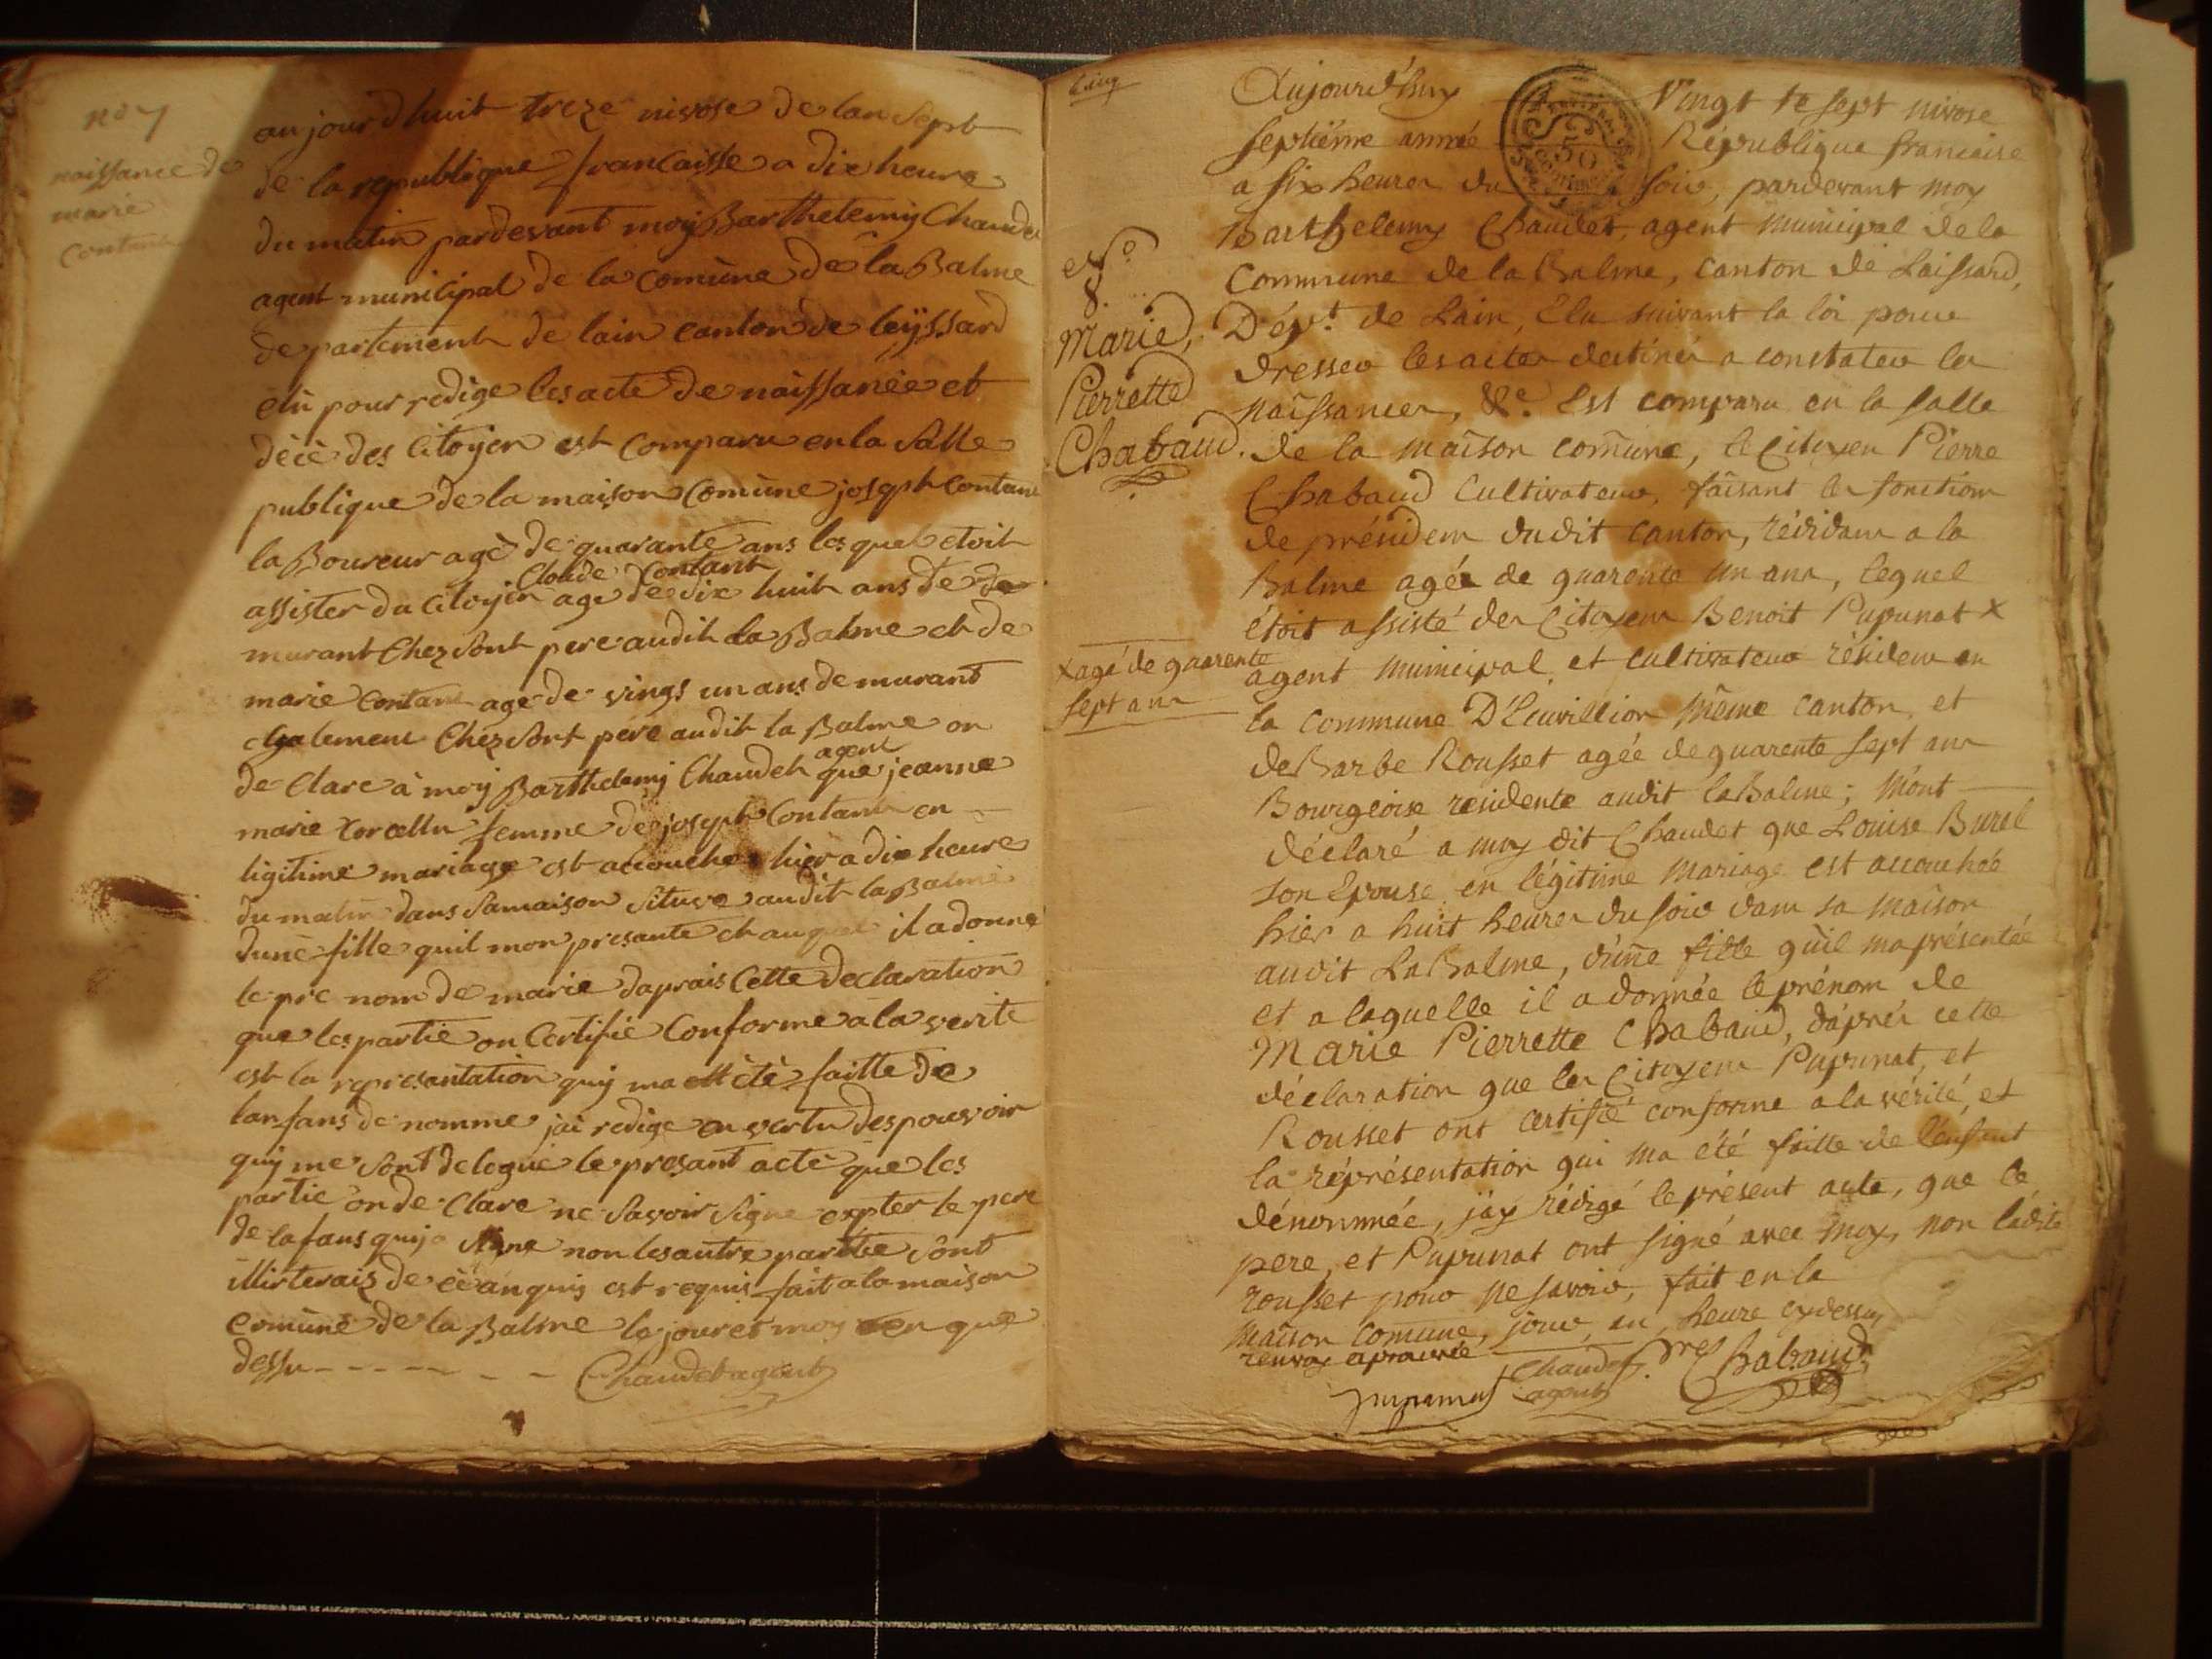 no 7
naissance de
marie
aujourdhuit treze nivose de lan sept
de la republique francaisse a dix heure
du matin pardevant moy Barthelemy Chaudet
agent municipal de la comùne de la Balme
departement de lain canton de leyssard
elù pour redige les acte de naissance et
décè des citoyen est comparu en la salle
publique de la maison comùne joseph contant
laboureur agè de quarante ans lesquel etoit
Claude Contant
assister du citoyen age de dix huit ans de de
murant chez sont pere audit la Balme et de
marie contant age de vings un ans demurant
egalement chez sont pére audit la Balme on
agent
de clare à moy Barthelemy Chaudet que jeanne
marie femme de joseph contant en
ligitime mariage est accouche hier a dix heure
du matin dans samaison situve audit la Balme
dune fille quil mon presante et auquel il a donné
le pre nom de marie daprais cette declaration
que les partie on certifie conforme a la verite
est la represantation quy ma ett étè faitte de
lanfans de nomme jai redige en vertu des pouvoir
quy me sont delegue le presant acte que les
partie on de clare ne savoir signe expter le pere
de lafans quy a signe non les autre partie sont
de requis fait a la maison
comùne de la Balme le jour et moy en que
dessu - - - - - - - Chaudet agent
Aujourd'huy Vingt te sept nivose
septiëme année République francaise
a six heures du soir, pardevant moy
Barthelemy Chaudet, agent municipal de la
Commune de la Balme, canton de Laissard,
Dépt. de Lain, Elu suivant la loi pour
dresser les actes destinés a constater les
naissances, &c. Est comparu en la salle
de la maison comune, le Citoyen Pierre
Chabaud Cultivateur, faisant les fonctions
de président dudit canton, résidant a la
Balme agée de quarente un ans, lequel
étoit assisté des Citoyens Benoit Pupunat x
agent municipal et cultivateur résident en
la commune D'Leuvillion même canton, et
de Barbe Rousset agée de quarente sept ans
Bourgeoise residente audit la Balme; m'ont
déclaré a moy dit Chaudet que Louise Burel
son Epouse en légitime Mariage est accouchée
hier a huit heures du soir dans sa maison
audit LaBalme, d'une fille qu'il ma présentée
et a laquelle il a donnée le prénom de
Marie Pierrette Chabaud, d'aprés cette
déclaration que les Citoyens Pupunat, et
Rousset ont certifié conforme a la vérité, et
la réprésentation qui ma été faitte de l'enfant
dénommée, j'ay rédigé le présent acte, que le
pere, et Pupunat ont signé avec moy, non ladite
rousset pour ne savoir, fait en la
maison comune, jour, an, heure cydessus
renvoy aprouvée
Chaudet
agent
Pre Chabaud
pupunat
No
8.
Marie,
Pierrette
Chabaud.
x agé de quarente
sept ans